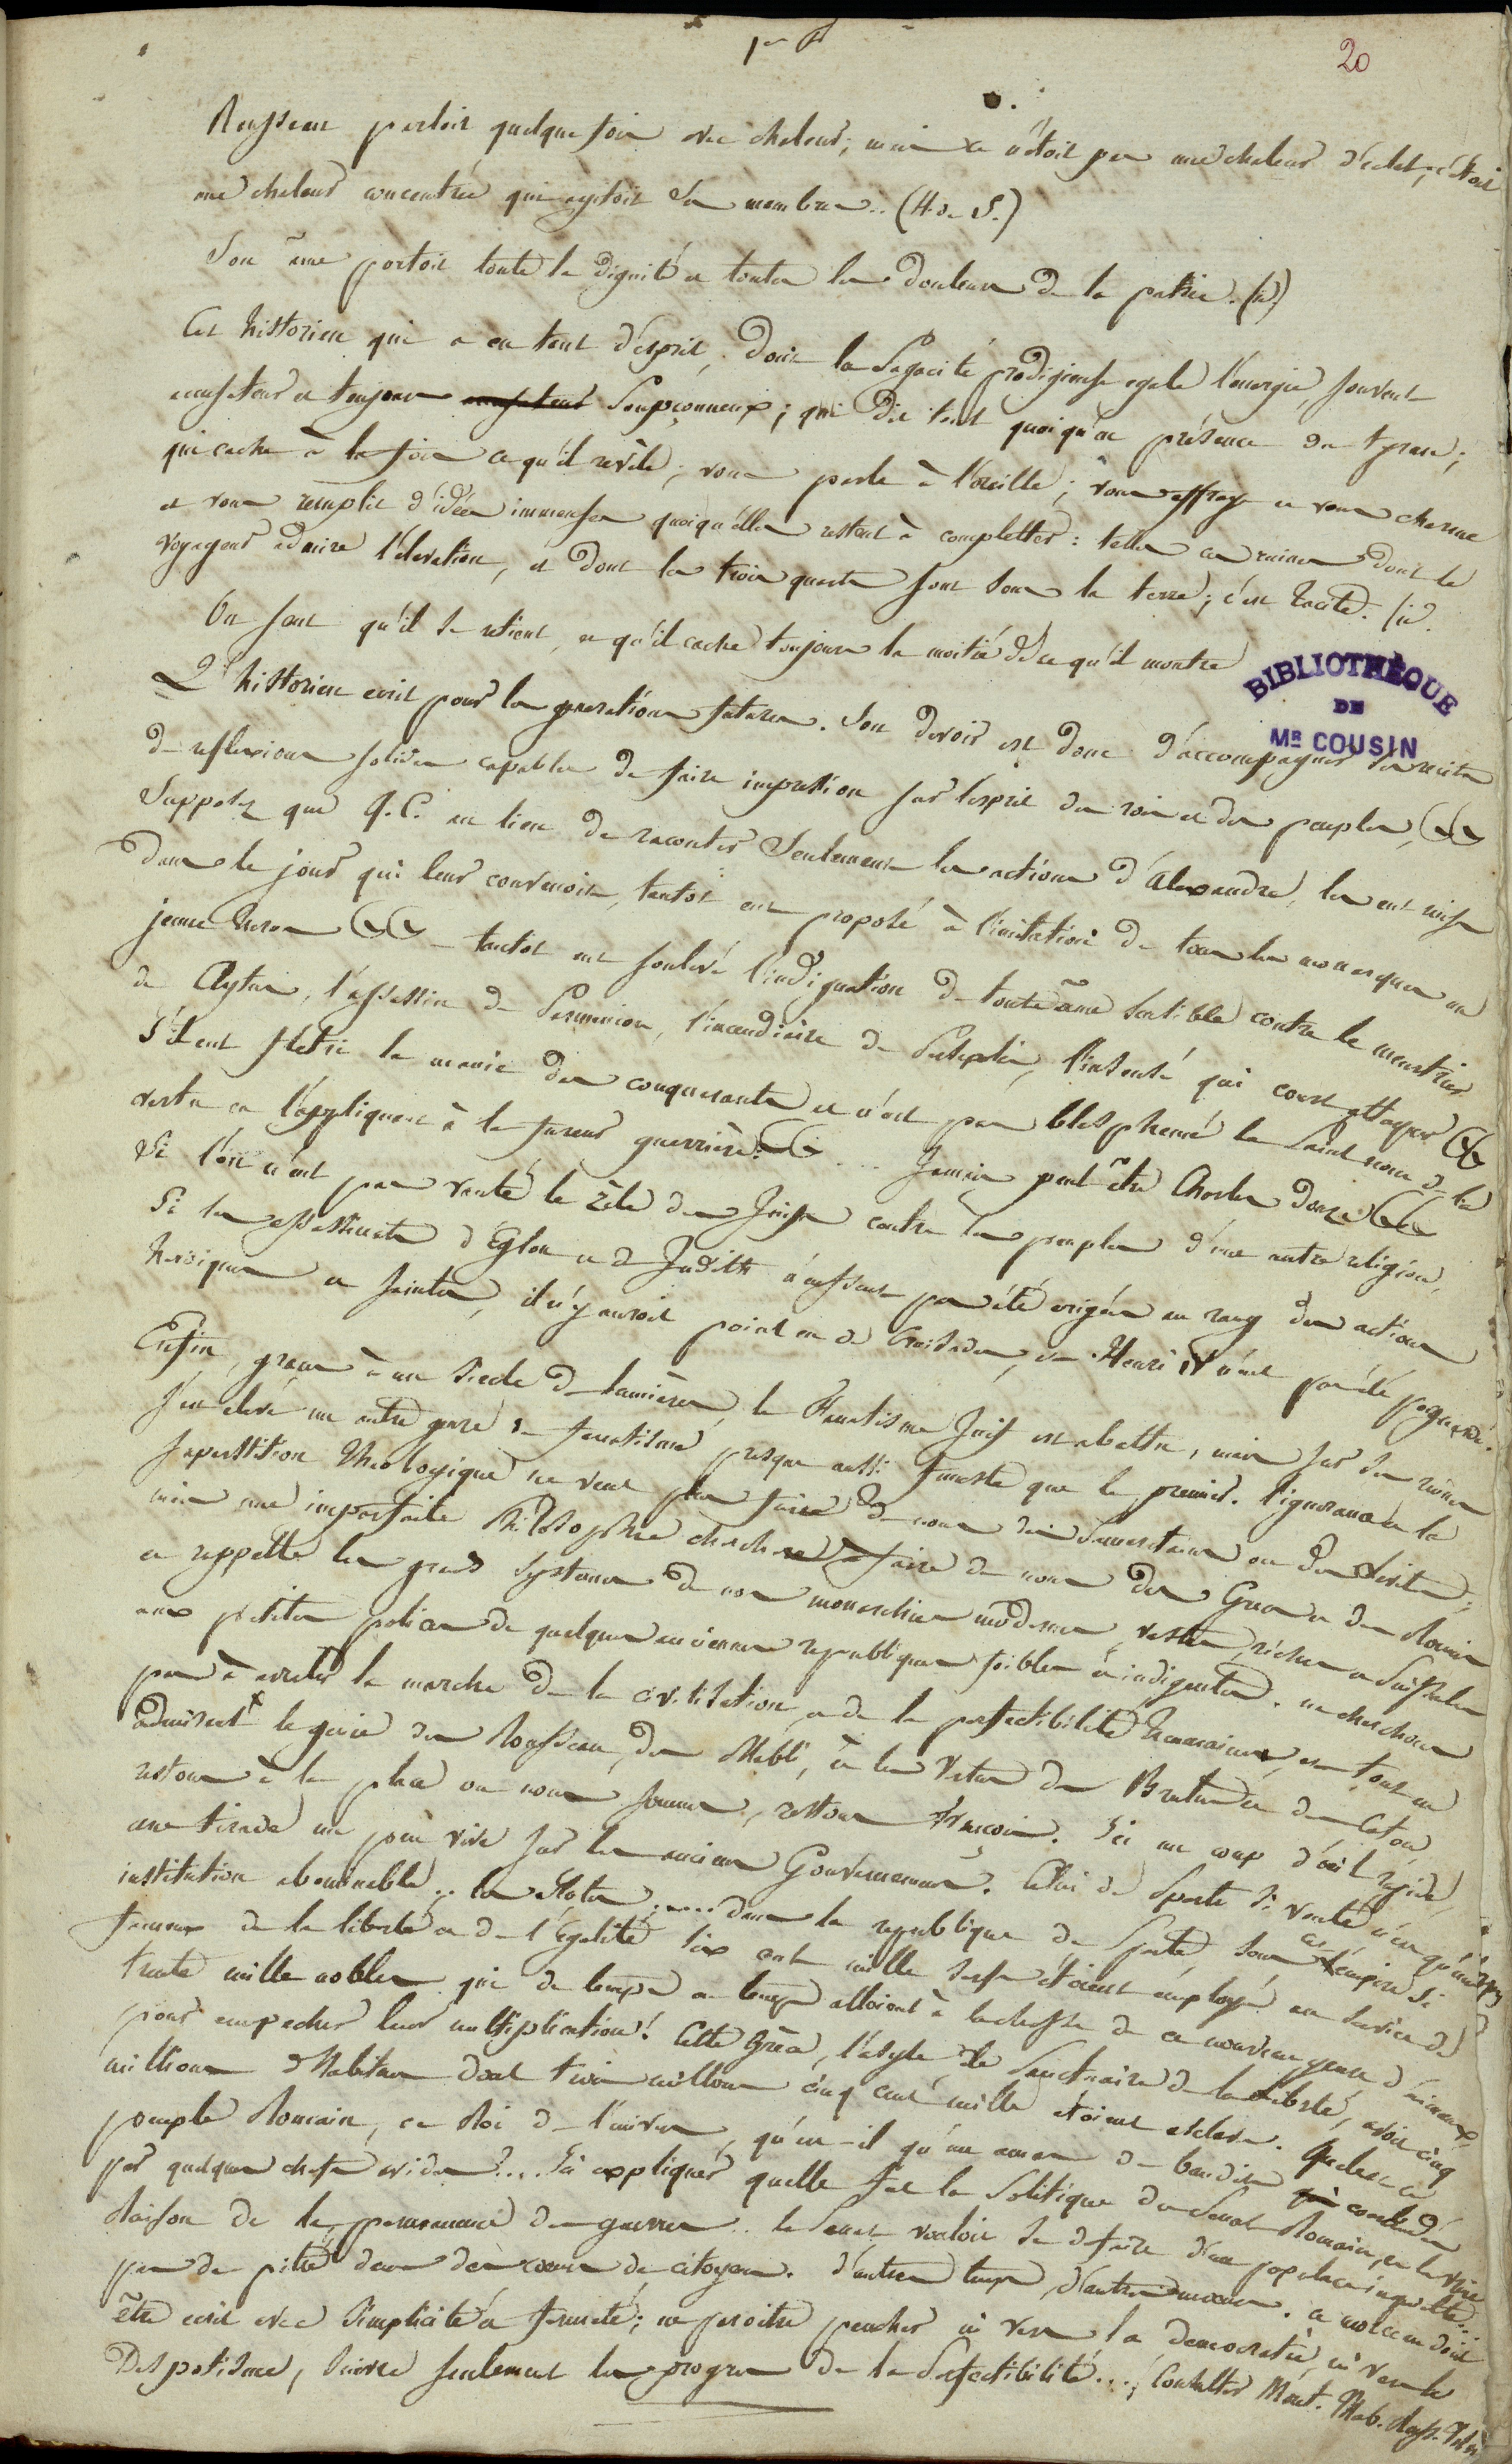 20
Rousseau parloit quelque fois avec chaleur; mais ce n'étoit pas une chaleur d'éclat, c'étoit
une chaleur concentrée qui agitoit ses membres.. (H. de S.)
Son âme portoit toute la dignité et toutes les douleurs de la patrie. (id)
Cet historien qui a eu tant d'esprit, dont la sagacité prodigieuse egale l'energie, souvent
accusateur et toujours soupçonneux; qui dit tout quoiqu'en présence du tyran;
qui cache à la fois ce qu'il revèle; vous parle à l'oreille; vous effraye et vous charme
et vous remplit d'idées immenses quoiqu'elles restent à completter: telles ces ruines dont le
voyageur admire l'élevation, et dont les trois quarts sont sous la terre; c'est Tacite. (id.
On sent qu'il se retient, et qu'il cache toujours la moitié de ce qu'il montre
BIBLIOTHÈQUE
DE
MR COUSIN
L'historien ecrit pour les generations futures. Son devoir est donc d'accompagner ses recits
de reflexions solides capables de faire impression sur l'esprit des rois et des peuples,
Supposez que Q.C. au lieu de raconter seulement les actions d'Alexandre, les eut mises
dans le jour qui leur convenoit, tantot eut proposé à l'imitation de tous les monarques un
jeune heros - tantot eut soulevé l'indignation de toute âme sensible contre le meurtrier
de Clytus, l'assassin de Parmenion, l'incendiaire de Persepolis, l'insensé qui court attaquer
S'il eut fletri la manie des conquerants et n'eut pas blasphemé le saint nom de la
vertu en l'appliquant à la fureur guerrière: ... Jamais peut être Charles douze
Si l'on n'eut pas vanté le zèle des Juifs contre les peuples d'une autre religion,
Si les assassinats d'Eglon et de Judith n'eussent pas été erigés au rang des actions
heroiques et saintes, il n'y auroit point eu de Croisades, et Henri IV n'eut pas été poignardé.
Enfin, graces à un siecle de lumières, le Fanatisme Juif est abattu, mais sur ses ruines
s'est elevé un autre genre de fanatisme presque aussi funeste que le premier. l'ignorance et la
superstition theologique ne veut plus faire de nous des Samaritains ou des Levites;
mais une imparfaite Philosophie cherche à faire de nous des Grecs et des Romains
et rappelle les grands systemes de nos monarchies modernes, vastes, riches et puissantes
aux petites polices de quelques anciennes republiques foibles et indigentes. ne cherchons
pas à arreter la marche de la civilisation, et de la perfectibilité humaine, et tout en
admirant le genie des Rousseau, des Mabli, et les vertus des Brutus et des Caton,
restons à la place ou nous sommes, restons françois. Ici un coup d'œil rapide,
une tirade un peu vive sur les anciens Gouvernemens. Celui de Sparte si vanté n'est qu'une
institution abominable.. les Ilotes ..... dans la republique de Sparte, sous cet empire si
fameux de la liberté et de l'Egalité six cent mille serfs étoient employés au service de
trente mille nobles qui de temps en temps alloient à la chasse de ce nouveau genre d'animaux,
pour empecher leur multiplication! Cette Grèce, l'asyle, le Sanctuaire de la liberté, avoit cinq
millions d'habitans dont trois millions cinq cent mille étoient esclaves. Quel est ce
peuple Romain, ce Roi de l'univers, qu'est-il qu'un amas de bandits conduits
par quelques chefs avides?... Ici expliquer quelle fut la Politique du Senat Romain, et la vraie
Raison de la permanence des guerres.. le Senat vouloit se defaire d'une populace inquiette..
pas de pitié dans des cœurs de citoyens. d'autres temps, d'autres mœurs. ce morceau doit
être ecrit avec simplicité et fermeté; ne paroitre pencher ni vers la democratie, ni vers le
Despotisme, suivre seulement les progrès de la Perfectibilité...; Consulter Mont. Mab. Rouss.